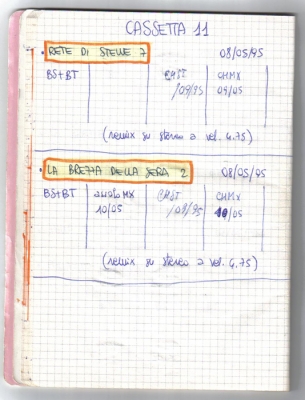 CASSETTA 11
RETE DI STELLE 7 08/05/95
BS+BT CHMX
/09/95 04/05
(remix su stereo a vel. 4.75)
LA BREZZA DELLA SERA 2 08/05/95
BS+BT CHMX
10/05 /09/95 10/05
(remix su stereo a vel. 4.75)